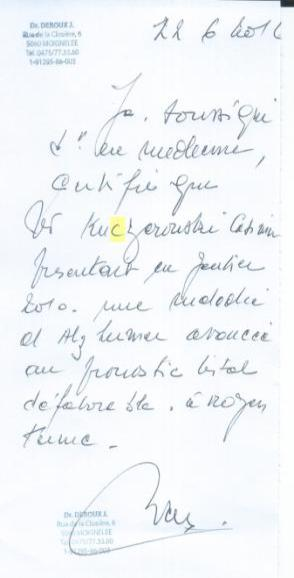 Dr. DEROUX J.
Rue de la Closière, 6
5060 MOIGNELEE
Tel. 0475/77.33.60
1-91285-86-003
22 6 2016
Je soussigné
Dr en médecine,
certifie que
Mr Kuczerowski Casimir
présentait en Janvier
2010. une maladie
d'Alzheimer avancée
au pronostic vital
défavorable. à moyen
terme.
Dr. DEROUX J.
Rue de la Closière, 6
5060 MOIGNELEE
Tel. 0475/77.33.60
1-91285-86-003